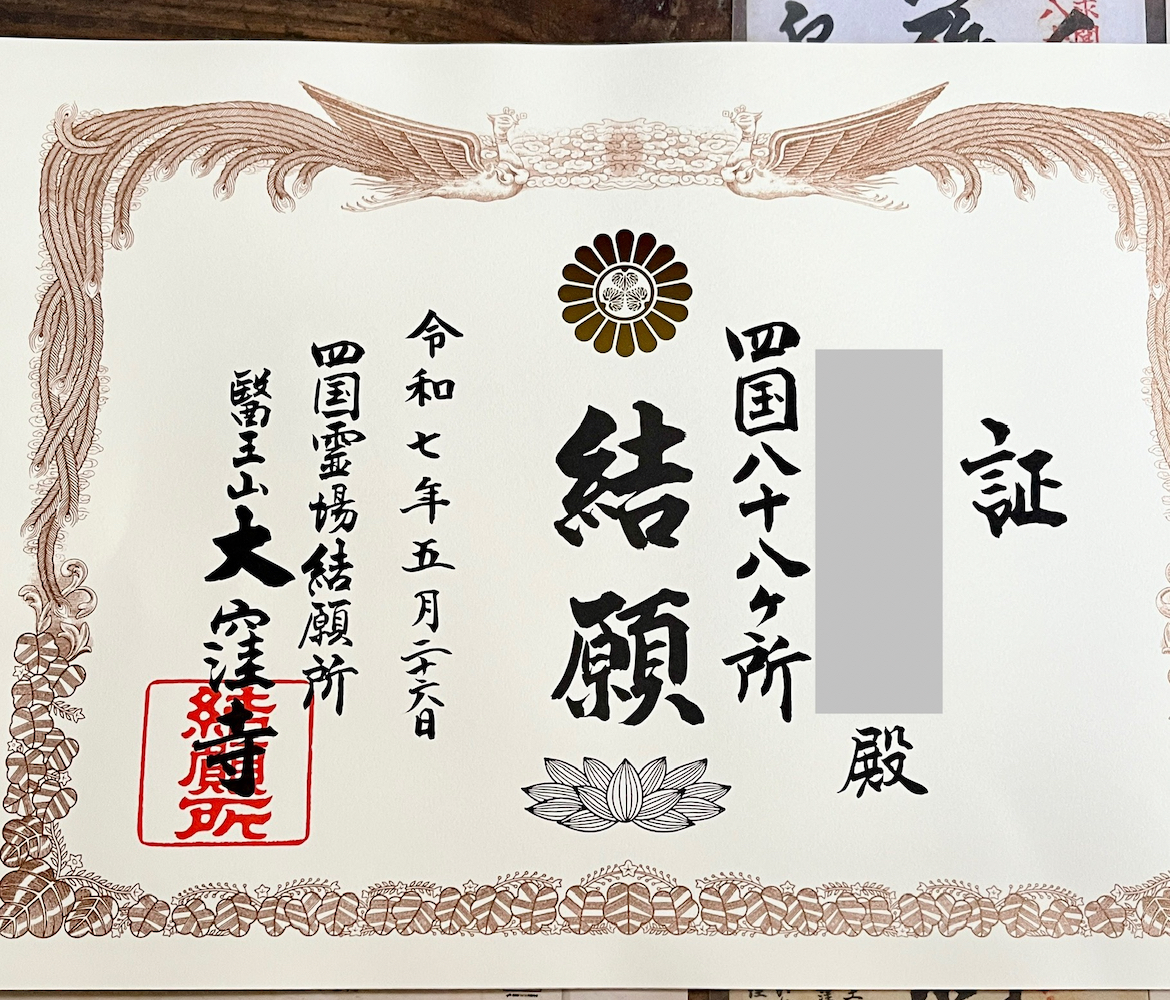 証
殿
四国八十八ヶ所
結願
令和七年五月二十六日
四国霊場結願所
醫王山大窪寺
結願所